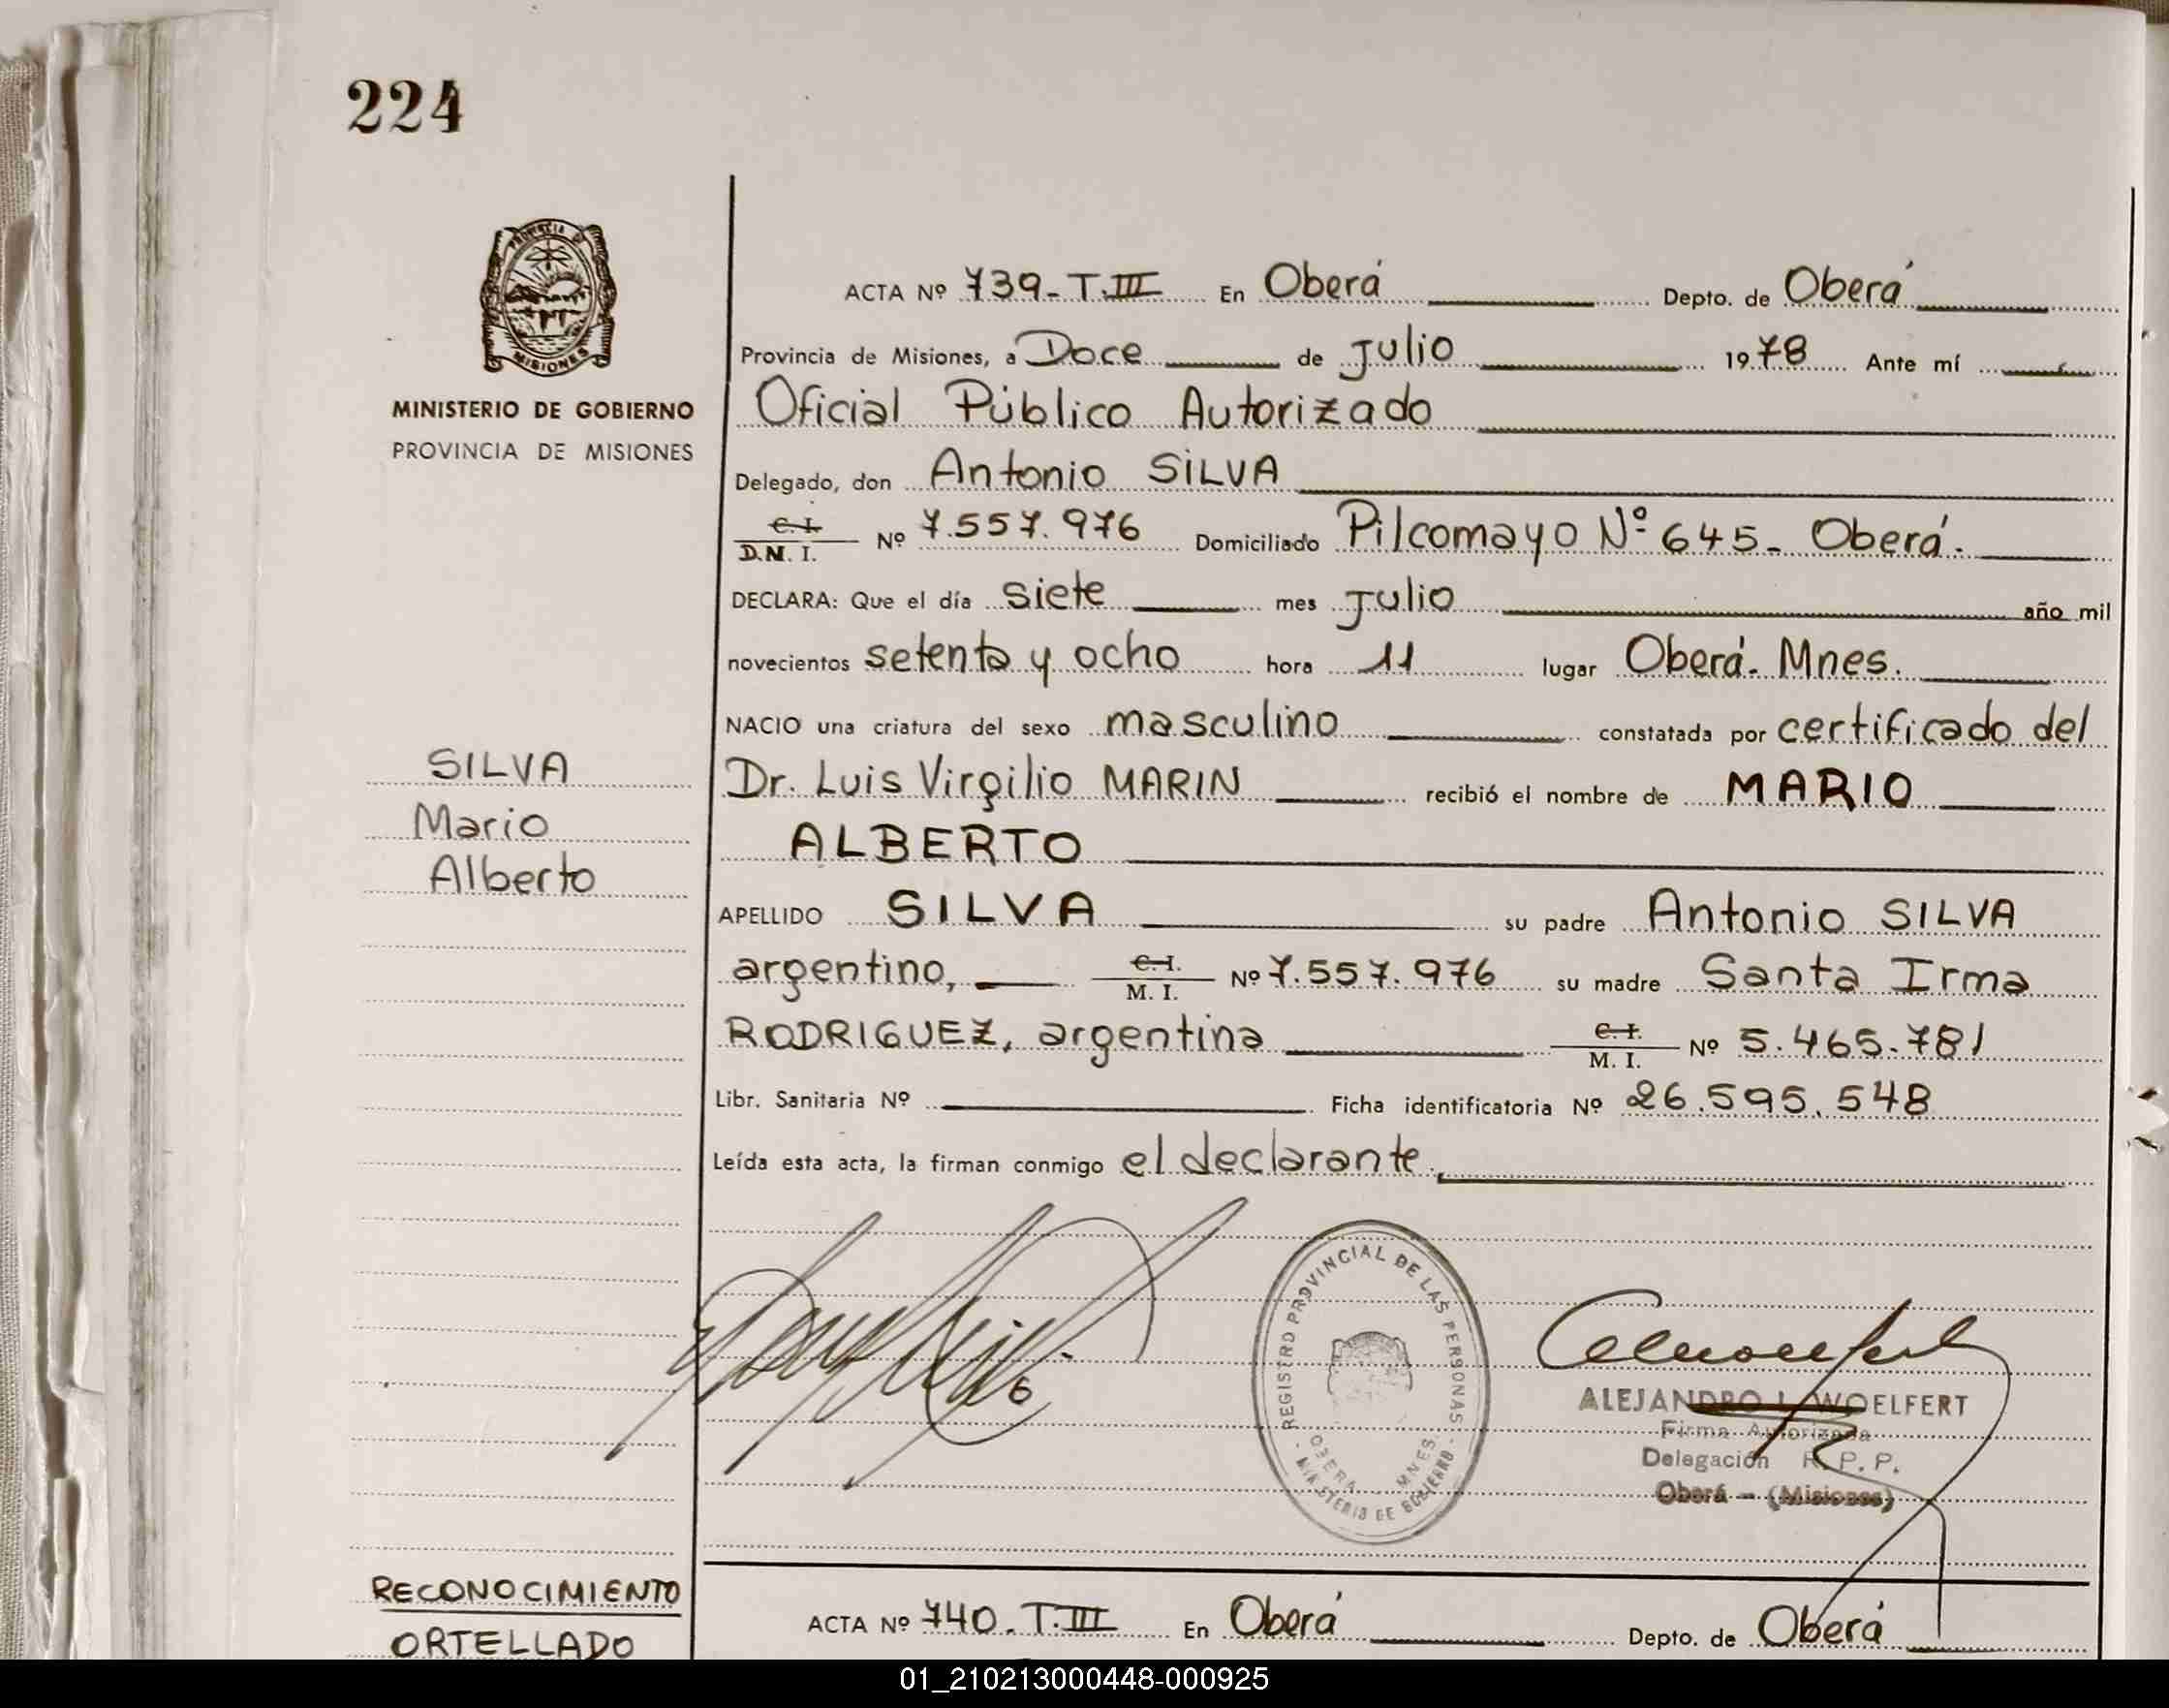 224
PROVINCIA DE
MISIONES
MINISTERIO DE GOBIERNO
PROVINCIA DE MISIONES
ACTA Nº 739-T.III En Oberá Depto. de Oberá
Provincia de Misiones, a Doce de Julio 1978 Ante mí
Oficial Público Autorizado
Delegado, don Antonio SILVA
C.I.
D.N.I. Nº 7.557.976 Domiciliado Pilcomayo Nº 645- Oberá.
DECLARA: Que el día siete mes Julio año mil
novecientos setenta y ocho hora 11 lugar Oberá- Mnes.
NACIO una criatura del sexo masculino constatada por certificado del
Dr. Luis Virgilio MARIN recibió el nombre de MARIO
ALBERTO
APELLIDO SILVA su padre Antonio SILVA
argentino, C.I.
M. I. Nº 7.557.976 su madre Santa Irma
RODRIGUEZ, argentina C.I.
M. I. Nº 5.465.781
Libr. Sanitaria Nº Ficha identificatoria Nº 26.595.548
Leída esta acta, la firman conmigo el declarante.
SILVA
Mario
Alberto
REGISTRO PROVINCIAL DE LAS PERSONAS
OBERA MNES
MINISTERIO DE GOBIERNO
ALEJANDRO L. WOELFERT
Firma Autorizada
Delegación R.P.P.
Oberá - (Misiones)
RECONOCIMIENTO
ORTELLADO
ACTA Nº 740-T.III En Oberá Depto. de Oberá
01_210213000448-000925